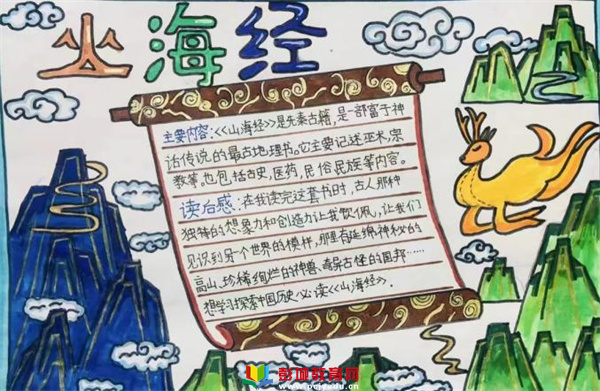 山海经
主要内容:<<山海经>>是先秦古籍,是一部富于神
话传说的最古地理书。它主要记述巫术,宗
教等。也包括古史,医药,民俗,民族等内容。
读后感:在我读完这套书时,古人那种
独特的想象力和创造力让我钦佩,让我们
见识到另一个世界的模样,那里有延绵神秘的
高山、珍稀绚烂的神兽、奇异古怪的国邦……
想学习探索中国历史,必读<<山海经>.
教育网